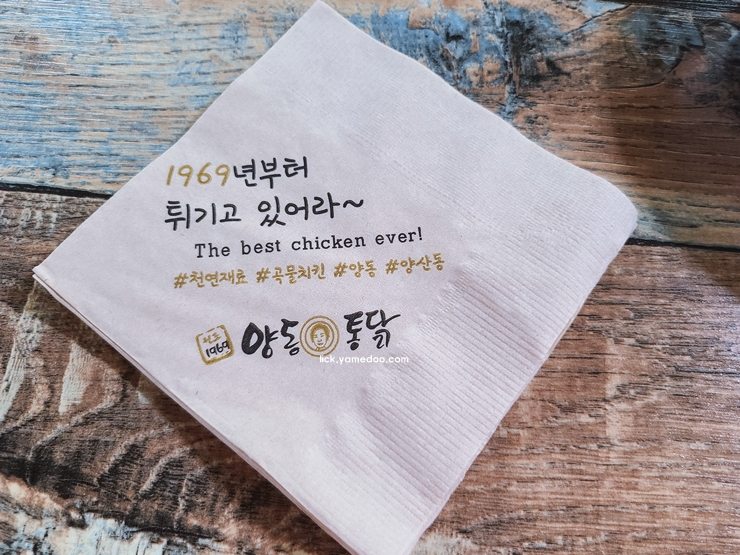 1969년부터
튀기고 있어라~
The best chicken ever!
#천연재료 #곡물치킨 #양동 #양산동
1969 양동 통닭
lick.yamedoo.com